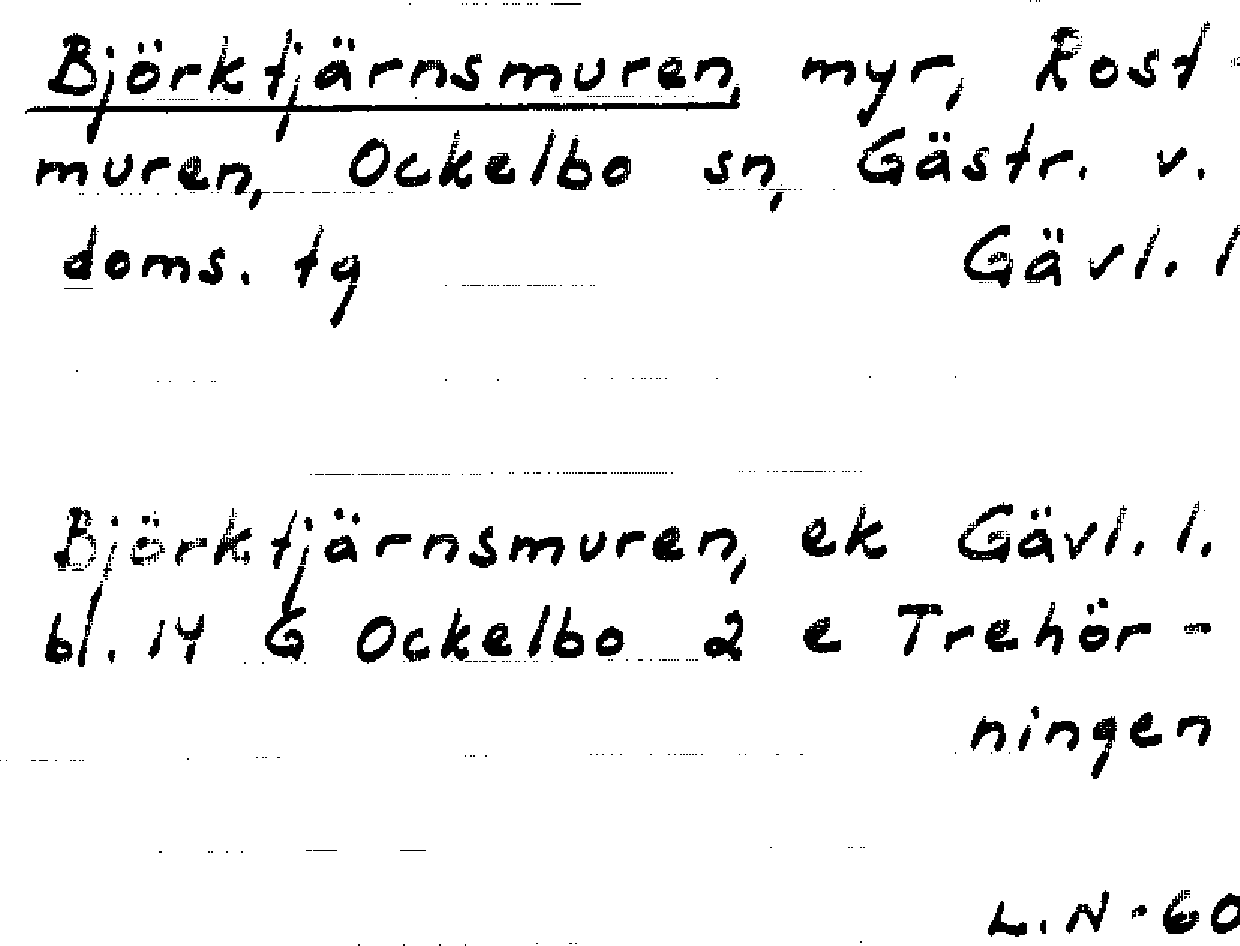 Björktjärnsmuren, myr, Rost-
muren, Ockelbo sn, Gästr. v.
doms. tg Gävl. l
Björktjärnsmuren, ek Gävl. l.
bl. 14 G Ockelbo 2 e Trehör-
ningen
L.N-60